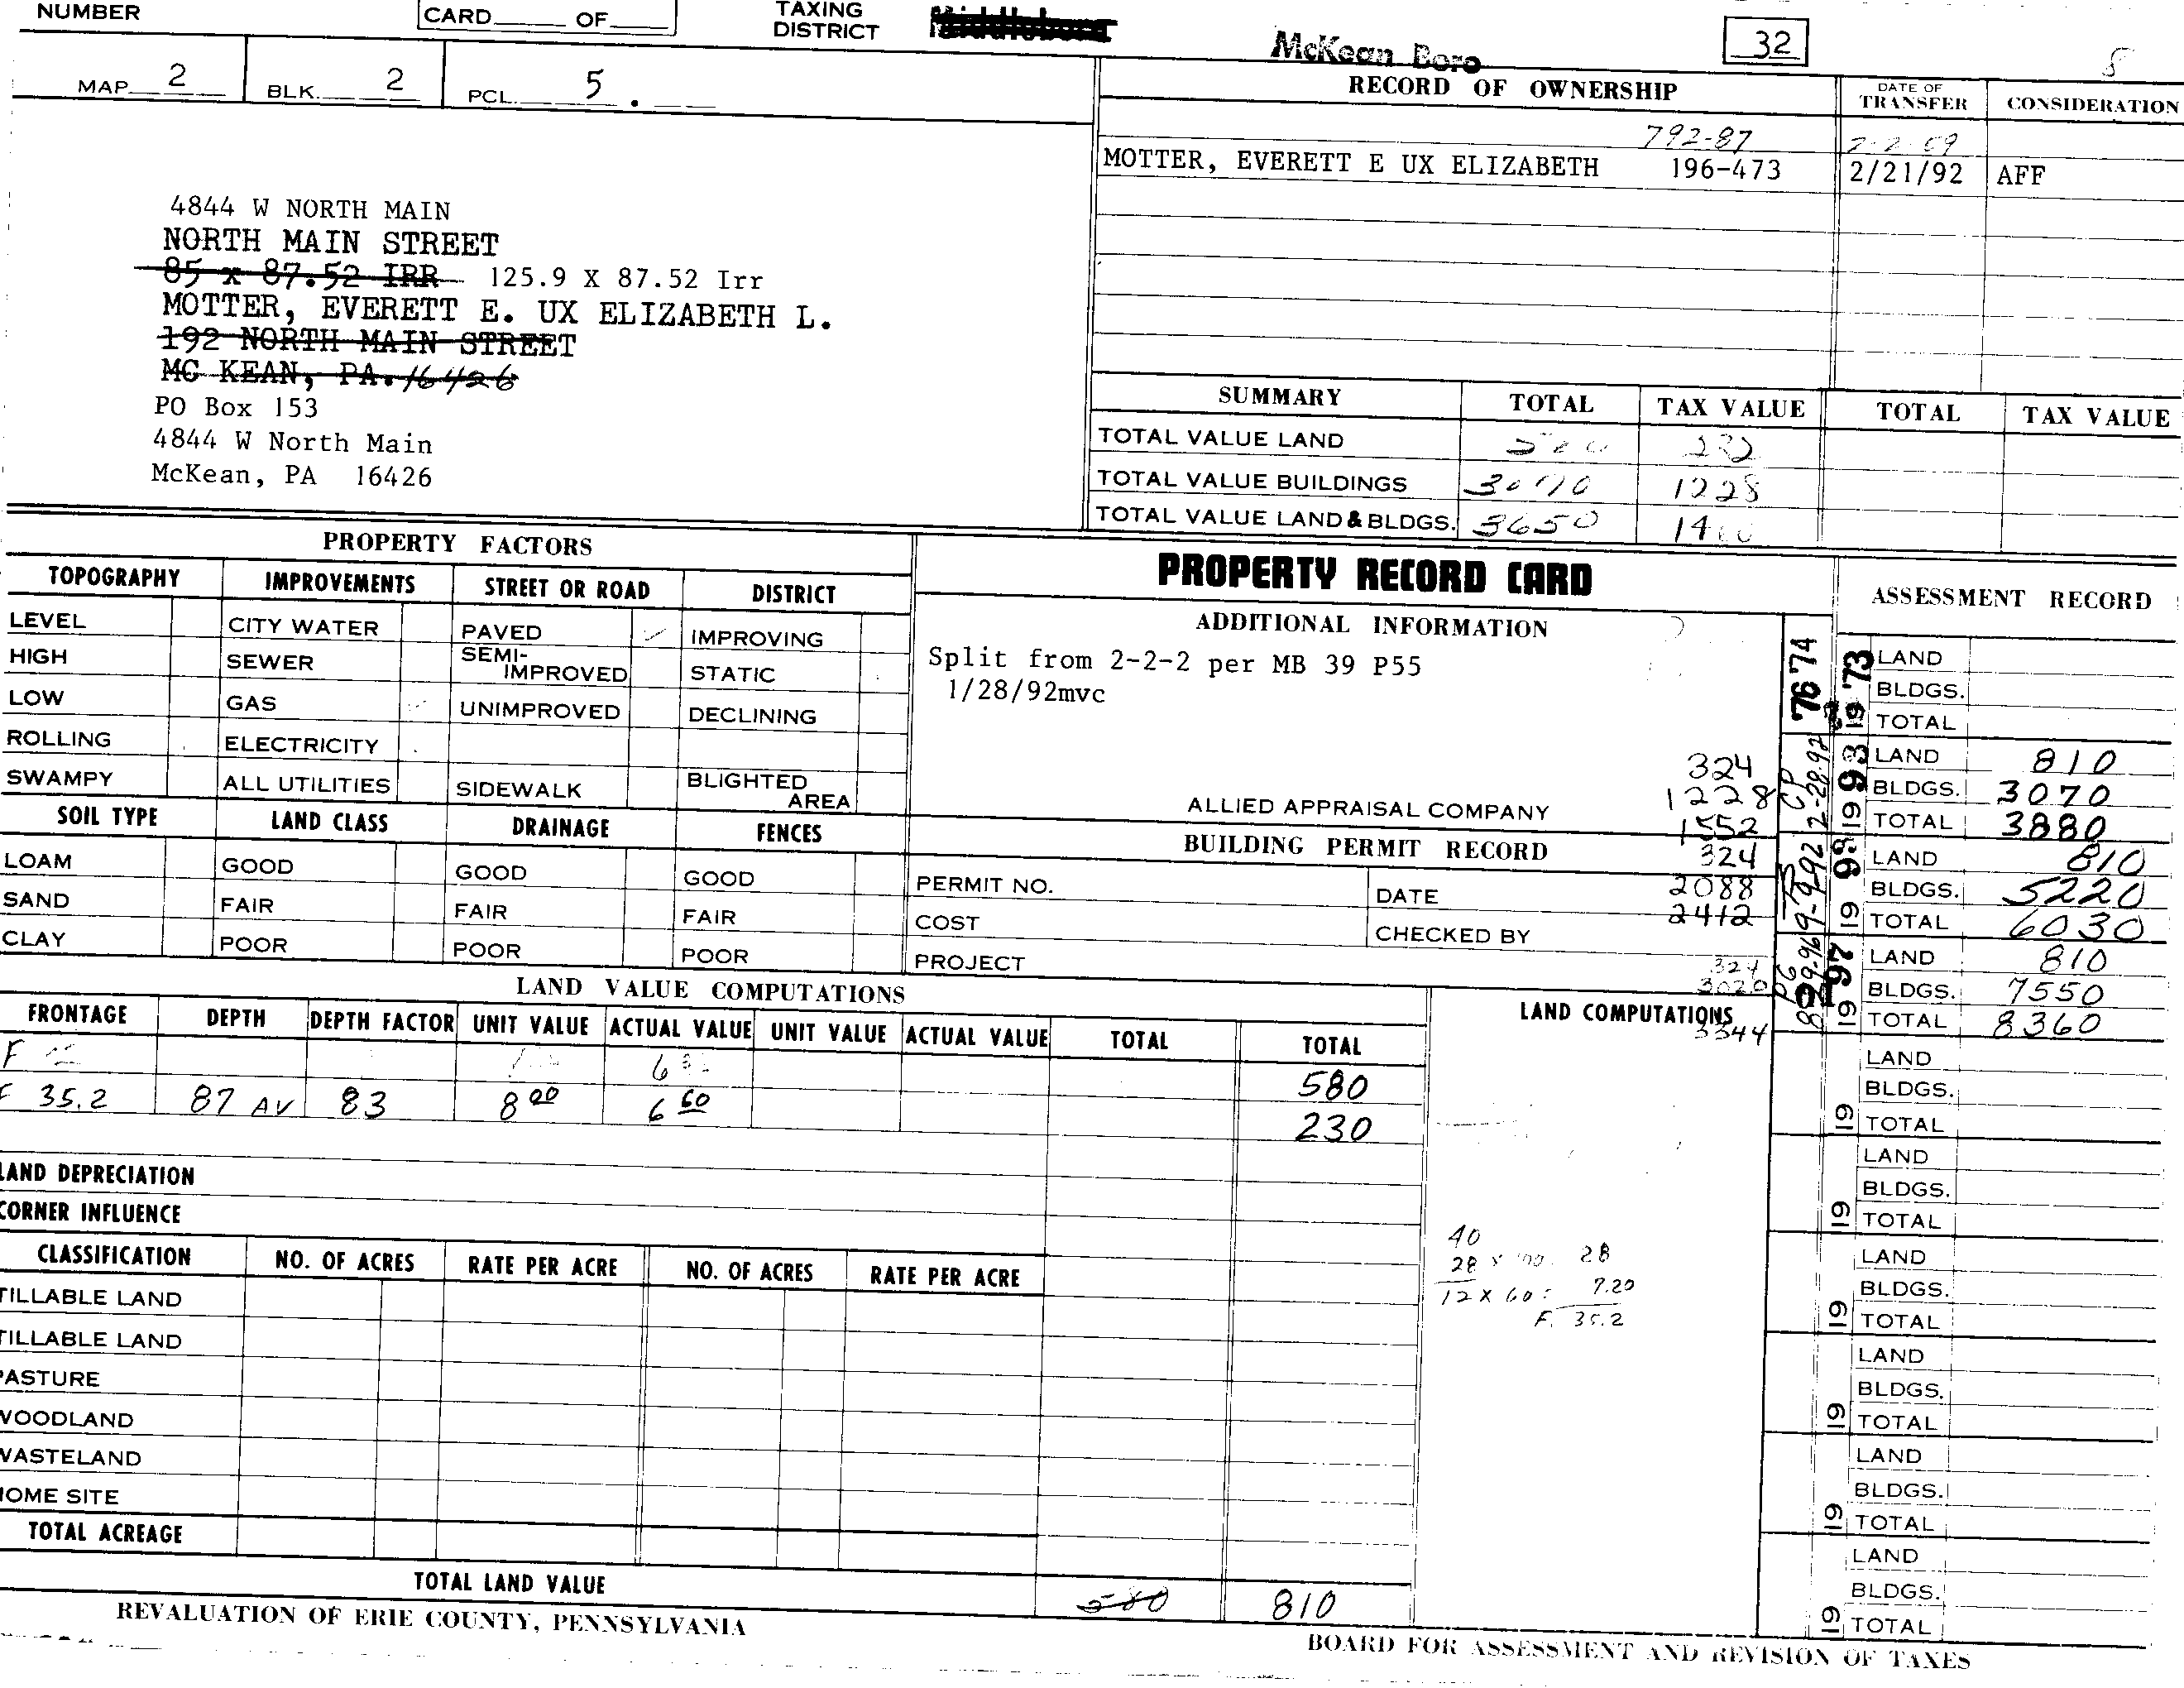 NUMBER
CARD OF
TAXING DISTRICT
Middleboro
McKean Boro
32
MAP 2 BLK. 2 PCL. 5 .
RECORD OF OWNERSHIP DATE OF TRANSFER CONSIDERATION
792-87
MOTTER, EVERETT E UX ELIZABETH 196-473 2/21/92 AFF
4844 W NORTH MAIN
NORTH MAIN STREET
85 x 87.52 IRR 125.9 X 87.52 Irr
MOTTER, EVERETT E. UX ELIZABETH L.
192 NORTH MAIN STREET
MC KEAN, PA. 16426
PO Box 153
4844 W North Main
McKean, PA 16426
SUMMARY TOTAL TAX VALUE TOTAL TAX VALUE
TOTAL VALUE LAND
TOTAL VALUE BUILDINGS 3070 1228
TOTAL VALUE LAND & BLDGS. 3650
PROPERTY FACTORS
TOPOGRAPHY IMPROVEMENTS STREET OR ROAD DISTRICT
LEVEL CITY WATER PAVED ✓ IMPROVING
HIGH SEWER SEMI-IMPROVED STATIC
LOW GAS UNIMPROVED DECLINING
ROLLING ELECTRICITY
SWAMPY ALL UTILITIES SIDEWALK BLIGHTED AREA
SOIL TYPE LAND CLASS DRAINAGE FENCES
LOAM GOOD GOOD GOOD
SAND FAIR FAIR FAIR
CLAY POOR POOR POOR
PROPERTY RECORD CARD
ADDITIONAL INFORMATION
Split from 2-2-2 per MB 39 P55
1/28/92mvc
324
1228
1552
ALLIED APPRAISAL COMPANY
BUILDING PERMIT RECORD
324
2088
2412
PERMIT NO. DATE
COST CHECKED BY
PROJECT
324
3020
3344
76 '74
CP 2-28-92
9-9-92
8-29-96
ASSESSMENT RECORD
19 73 LAND
BLDGS.
TOTAL
19 93 LAND 810
BLDGS. 3070
TOTAL 3880
19 93 LAND 810
BLDGS. 5220
TOTAL 6030
19 97 LAND 810
BLDGS. 7550
TOTAL 8360
LAND
BLDGS.
19 TOTAL
LAND
BLDGS.
19 TOTAL
LAND
BLDGS.
19 TOTAL
LAND
BLDGS.
19 TOTAL
LAND
BLDGS.
19 TOTAL
LAND
BLDGS.
19 TOTAL
LAND VALUE COMPUTATIONS
FRONTAGE DEPTH DEPTH FACTOR UNIT VALUE ACTUAL VALUE UNIT VALUE ACTUAL VALUE TOTAL TOTAL
F 580
F 35.2 87 AV 83 8 00 6 60 230
LAND COMPUTATIONS
40
28 28
12 X 60 = 7.20
F. 35.2
LAND DEPRECIATION
CORNER INFLUENCE
CLASSIFICATION NO. OF ACRES RATE PER ACRE NO. OF ACRES RATE PER ACRE
TILLABLE LAND
TILLABLE LAND
PASTURE
WOODLAND
WASTELAND
HOME SITE
TOTAL ACREAGE
TOTAL LAND VALUE 580 810
REVALUATION OF ERIE COUNTY, PENNSYLVANIA
BOARD FOR ASSESSMENT AND REVISION OF TAXES